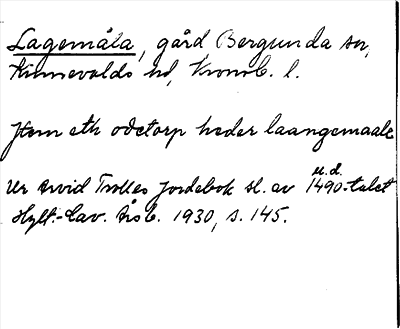 Lagemåla, gård Bergunda sn,
Kinnevalds hd, Kronob. l.
Jtem eth ødetorp heder laangemaale
Ur Arvid Trolles Jordebok sl. av 1490-talet
m.d.
Hylt.-Cav. Årsb. 1930, s. 145.